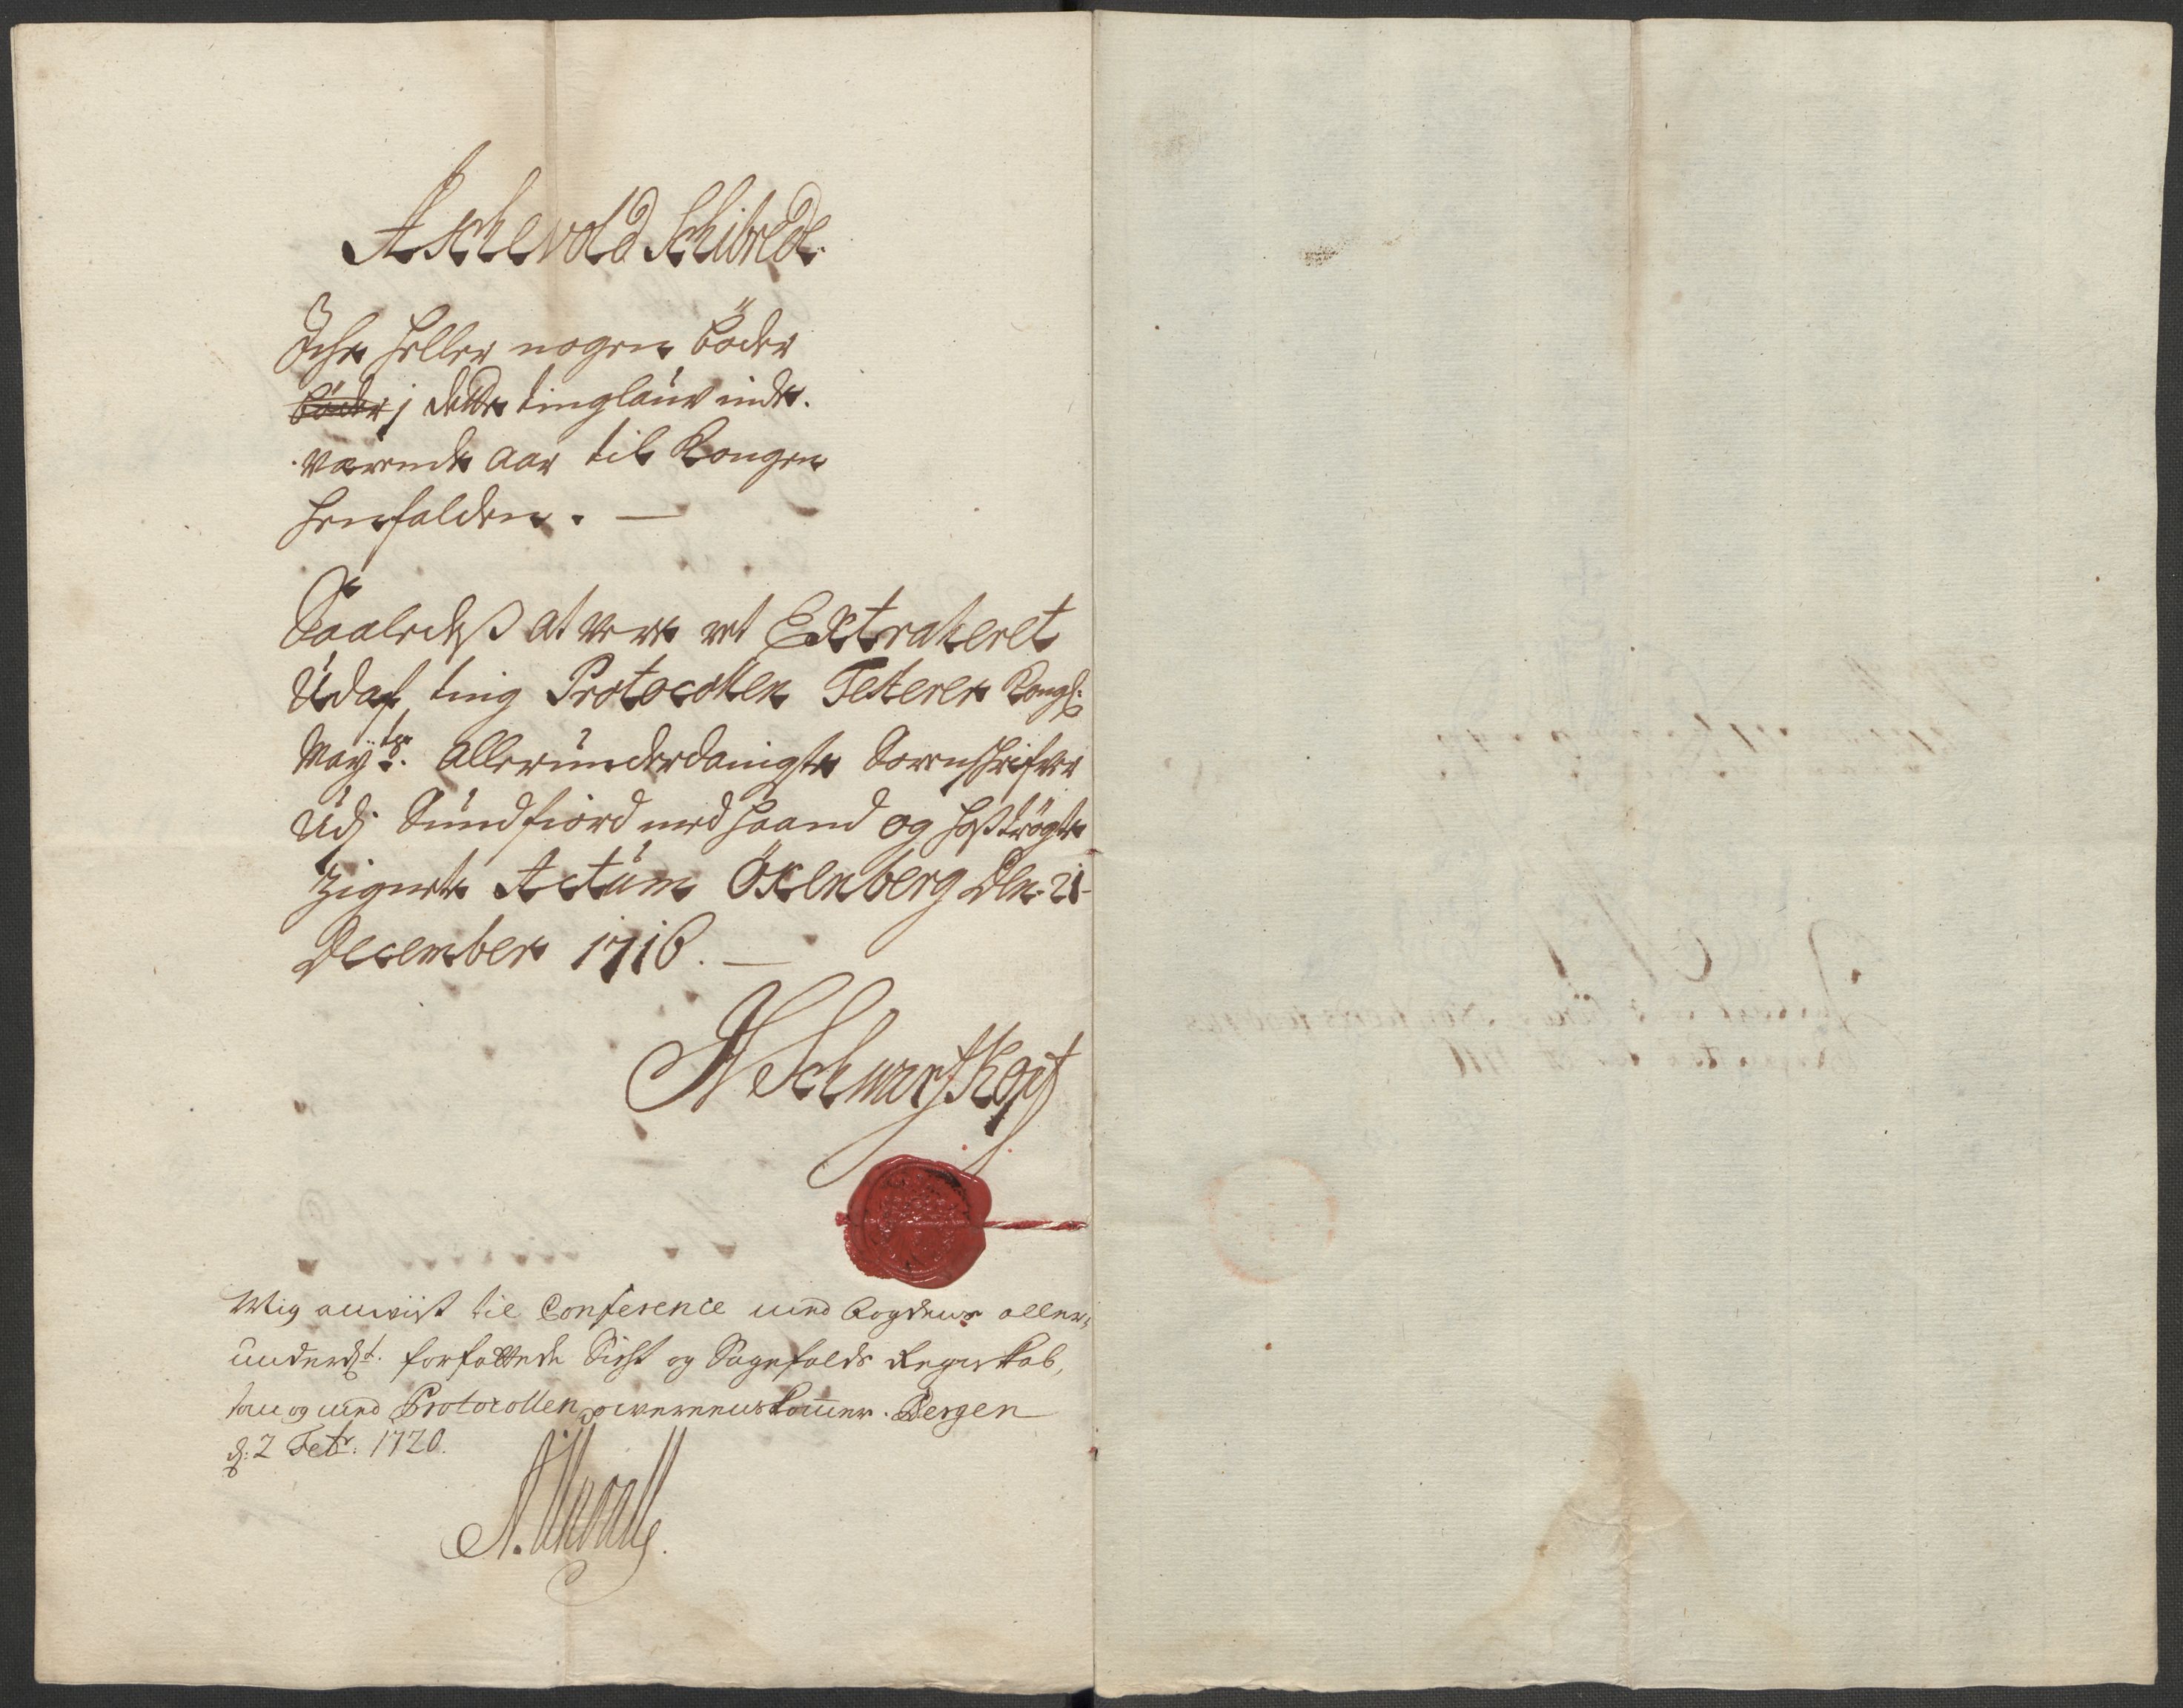 Aschevold Schibrede.
Iche heller nogen böder
böder j dette tinglaug inde-
værende aar til Kongen
henfalden. —
Saaledeß at vere ret Extraheret
Udaf ting Protocollen Testerer Kongl:
May:tz allerunderdanigste Sorenschrifver
Udj Sundfiord med haand og hoßtrögte
Zignete Actum Öxenberg Den 21
December 1716. —
Schwartzkopf
Mig anviist til Conference med Fogdens aller-
underd:t forfattede Sigt og Sagefalds Regnskab,
som og med Protocollen overeenskommer. Bergen
d: 2 Febr: 1720.